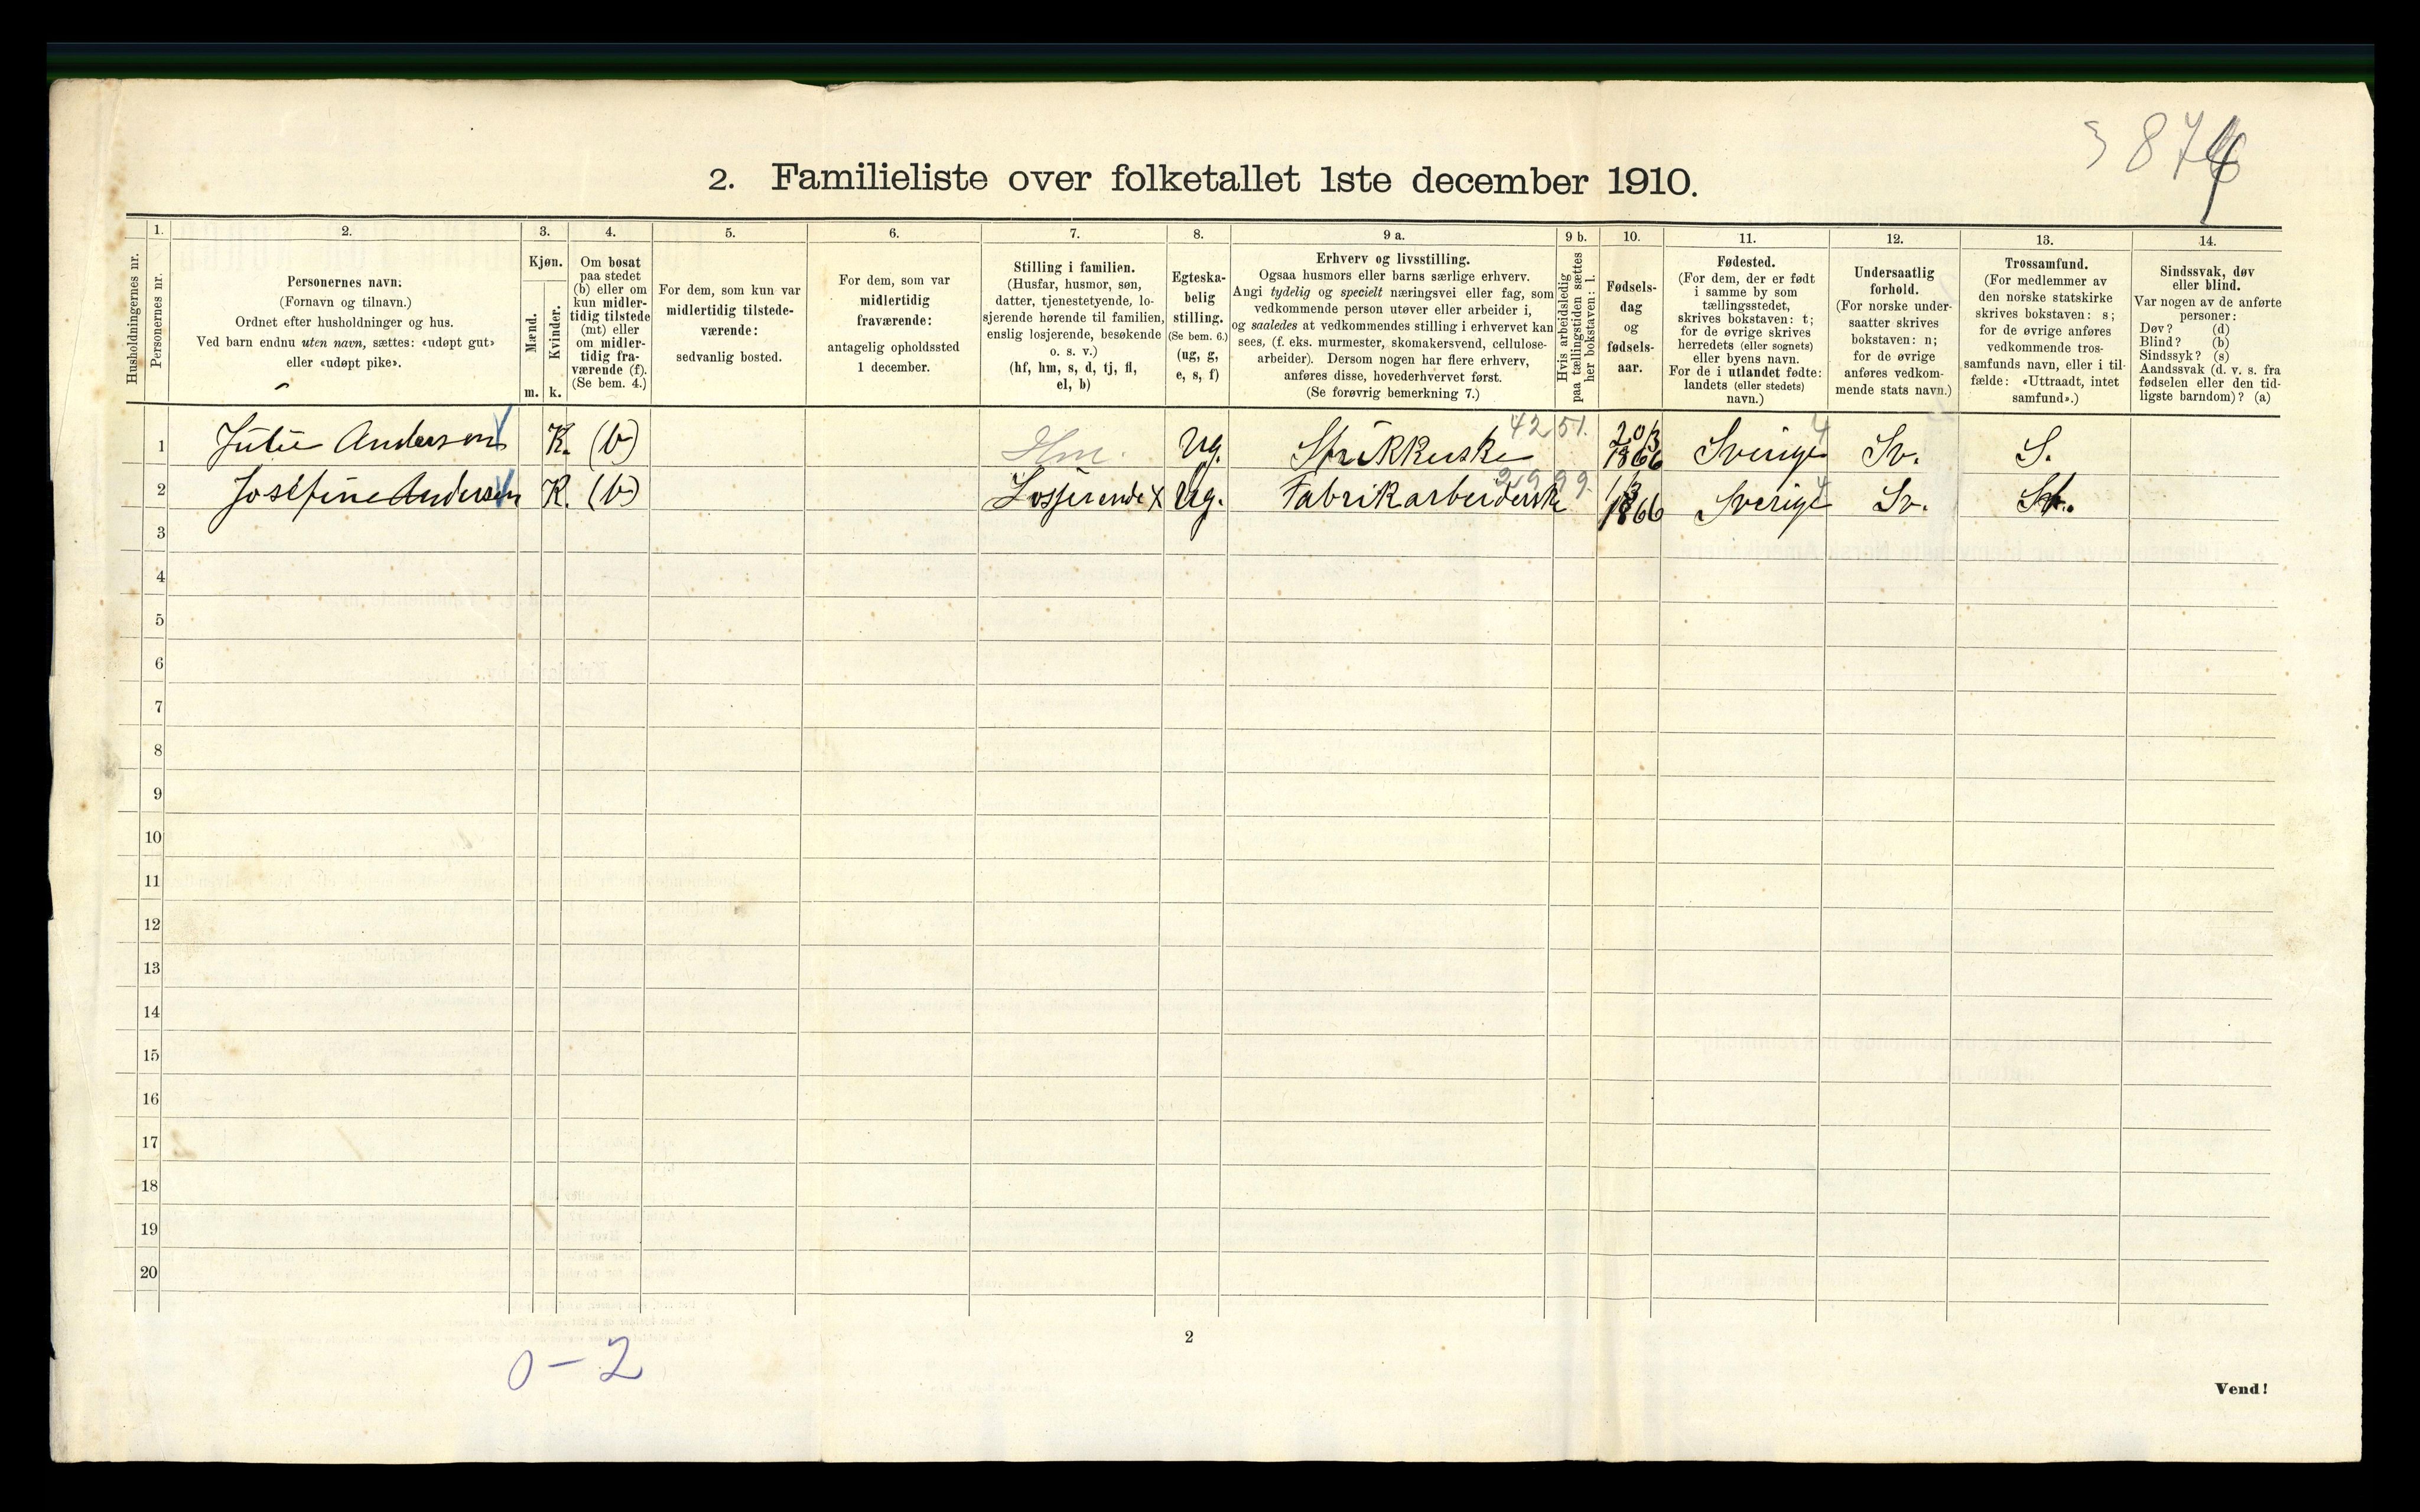 387
2. Familieliste over folketallet 1ste december 1910.
Husholdningernes nr.
1.
Personernes nr.
2.
Personernes navn.
(Fornavn og tilnavn.)
Ordnet efter husholdninger og hus.
Ved barn endnu uten navn, sættes: «udøpt gut»
eller «udøpt pike».
3.
Kjøn.
Mænd.
Kvinder.
m. k.
4.
Om bosat
paa stedet
(b) eller om
kun midler-
tidig tilstede
(mt) eller
om midler-
tidig fra-
værende (f).
(Se bem. 4.)
5.
For dem, som kun var
midlertidig tilstede-
værende:
sedvanlig bosted.
6.
For dem, som var
midlertidig
fraværende:
antagelig opholdssted
1 december.
7.
Stilling i familien.
(Husfar, husmor, søn,
datter, tjenestetyende, lo-
sjerende hørende til familien,
enslig losjerende, besøkende
o. s. v.)
(hf, hm, s, d, tj, fl,
el, b)
8.
Egteska-
belig
stilling.
(Se bem. 6.)
(ug, g,
e, s, f)
9 a.
Erhverv og livsstilling.
Ogsaa husmors eller barns særlige erhverv.
Angi tydelig og specielt næringsvei eller fag, som
vedkommende person utøver eller arbeider i,
og saaledes at vedkommendes stilling i erhvervet kan
sees, (f. eks. murmester, skomakersvend, cellulose-
arbeider). Dersom nogen har flere erhverv,
anføres disse, hovederhvervet først.
(Se forøvrig bemerkning 7.)
9 b.
Hvis arbeidsledig
paa tællingstiden sættes
her bokstaven: l.
10.
Fødsels-
dag
og
fødsels-
aar.
11.
Fødested.
(For dem, der er født
i samme by som
tællingsstedet,
skrives bokstaven: t;
for de øvrige skrives
herredets (eller sognets)
eller byens navn.
For de i utlandet fødte:
landets (eller stedets)
navn.)
12.
Undersaatlig
forhold.
(For norske under-
saatter skrives
bokstaven: n;
for de øvrige
anføres vedkom-
mende stats navn.)
13.
Trossamfund.
(For medlemmer av
den norske statskirke
skrives bokstaven: s;
for de øvrige anføres
vedkommende tros-
samfunds navn, eller i til-
fælde: «Uttraadt, intet
samfund».)
14.
Sindssvak, døv
eller blind.
Var nogen av de anførte
personer:
Døv? (d)
Blind? (b)
Sindssyk? (s)
Aandssvak (d. v. s. fra
fødselen eller den tid-
ligste barndom)? (a)
1 Julie Anderson K. (b) Hm. Ug. Strikkerske 4251. 20/3 1866 Sverige 4 Sv. S.
2 Josefine Anderson K. (b) Losjerende X Ug. Fabrikarbeiderske 2999. 1866 Sverige 4 Sv.
3
4
5
6
7
8
9
10
11
12
13
14
15
16
17
18
19
20
0 - 2
2
Vend!